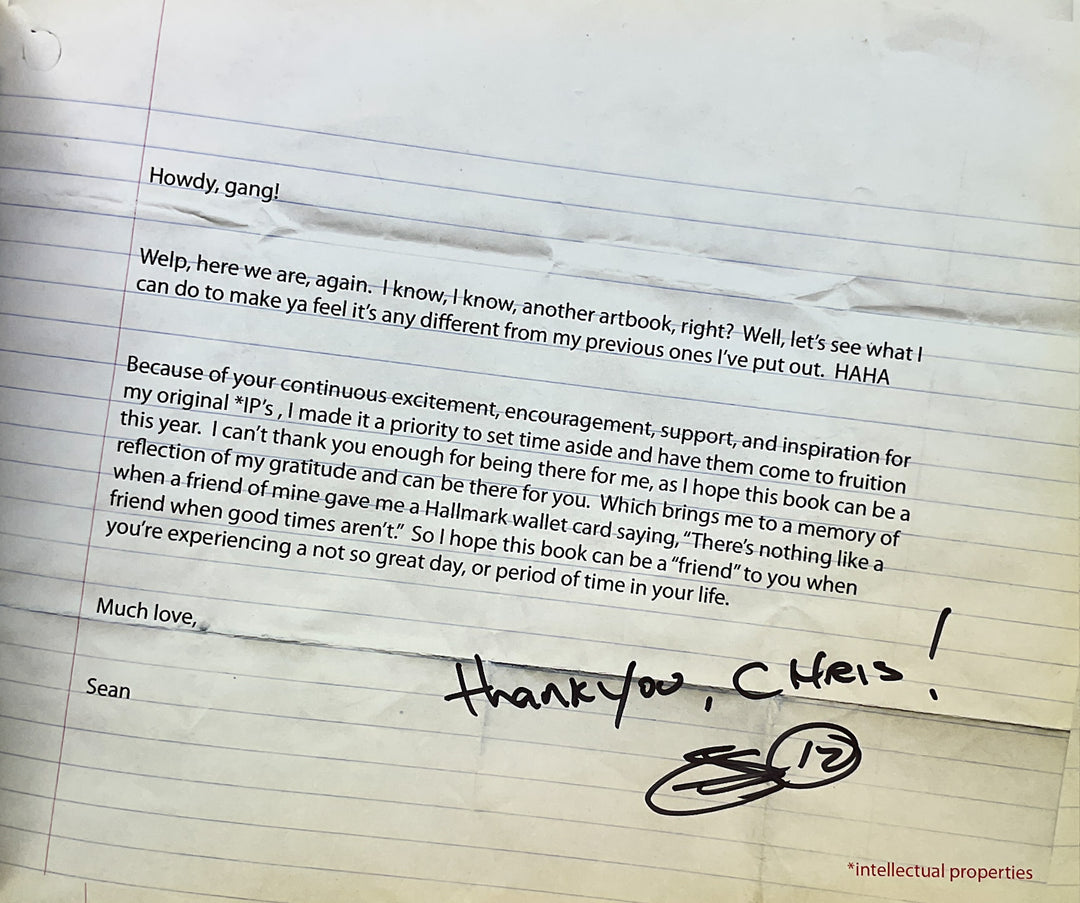 Howdy, gang!
Welp, here we are, again.  I know, I know, another artbook, right?  Well, let's see what I
can do to make ya feel it's any different from my previous ones I've put out.  HAHA
Because of your continuous excitement, encouragement, support, and inspiration for
my original *IP's , I made it a priority to set time aside and have them come to fruition
this year.  I can't thank you enough for being there for me, as I hope this book can be a
reflection of my gratitude and can be there for you.  Which brings me to a memory of
when a friend of mine gave me a Hallmark wallet card saying, "There's nothing like a
friend when good times aren't."  So I hope this book can be a "friend" to you when
you're experiencing a not so great day, or period of time in your life.
Much love,
Sean
thank you, CHRIS!
12
*intellectual properties